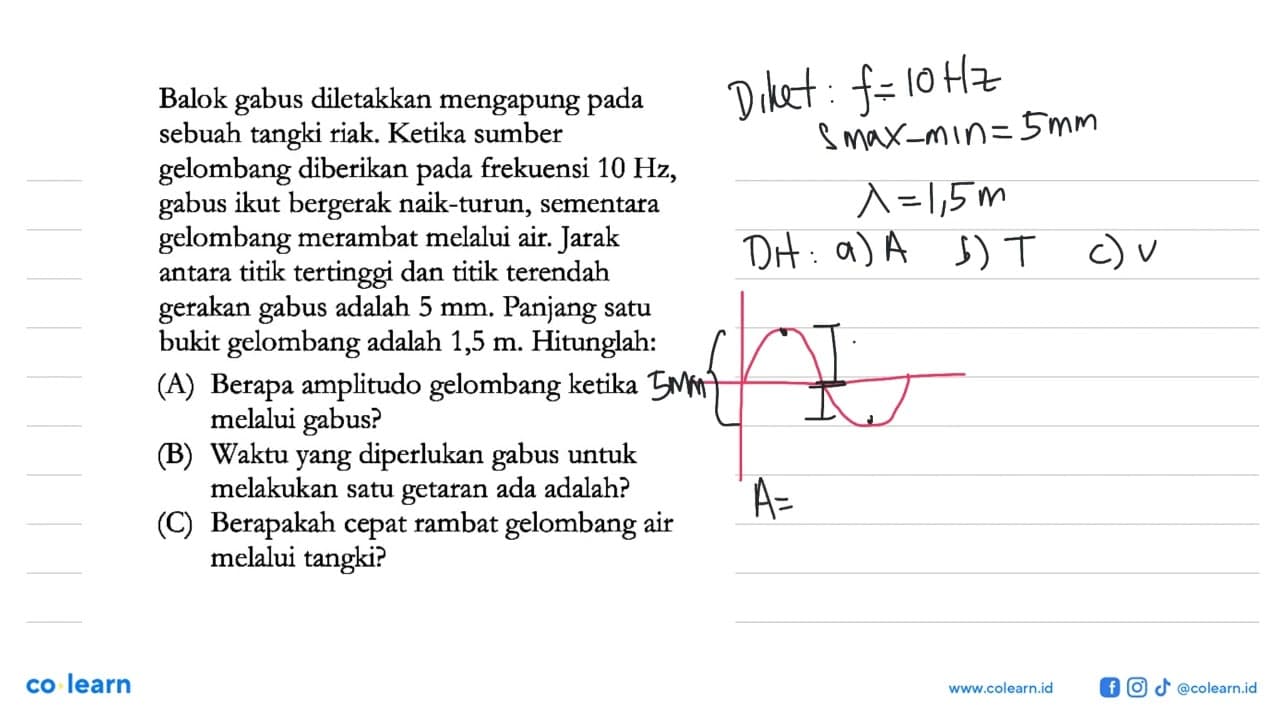 Balok gabus diletakkan mengapung pada
sebuah tangki riak. Ketika sumber
gelombang diberikan pada frekuensi 10 Hz,
gabus ikut bergerak naik-turun, sementara
gelombang merambat melalui air. Jarak
antara titik tertinggi dan titik terendah
gerakan gabus adalah 5 mm. Panjang satu
bukit gelombang adalah 1,5 m. Hitunglah:
(A) Berapa amplitudo gelombang ketika
melalui gabus?
(B) Waktu yang diperlukan gabus untuk
melakukan satu getaran ada adalah?
(C) Berapakah cepat rambat gelombang air
melalui tangki?
Diket: f = 10 Hz
S max-min = 5mm
λ = 1,5 m
DH: a) A b) T c) v
5mm
A=
co learn
www.colearn.id
@colearn.id